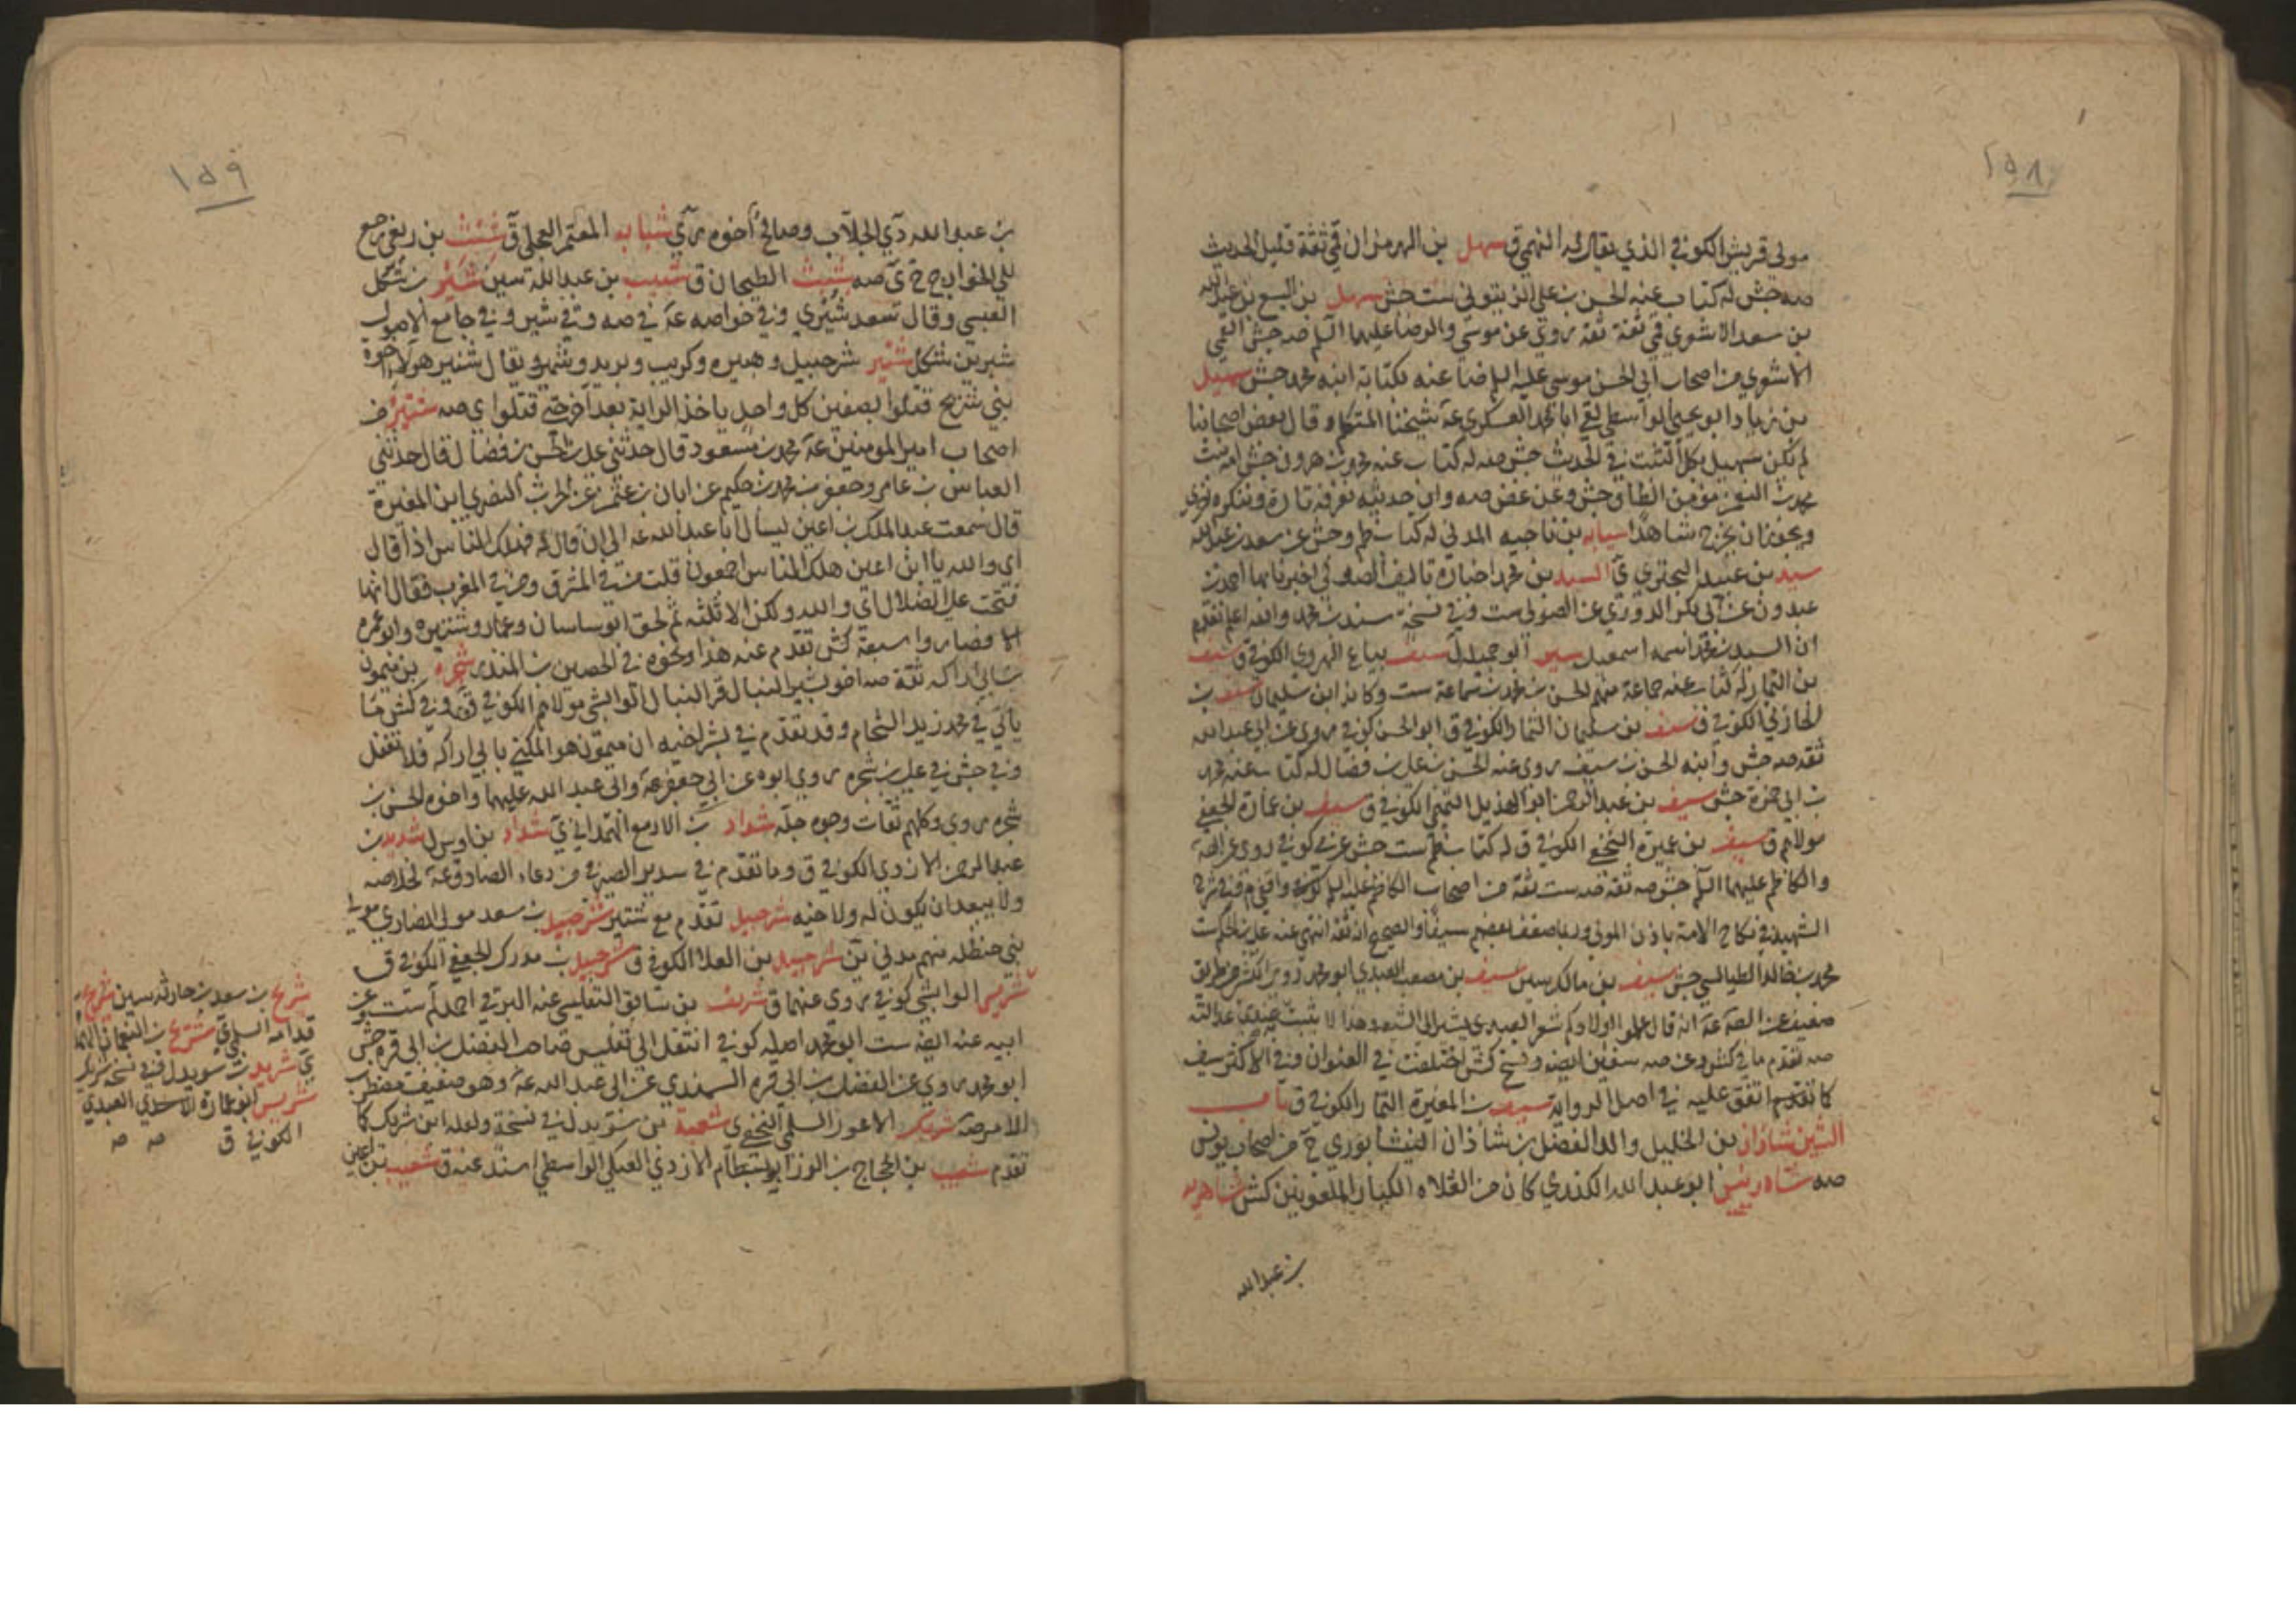 ١٥٨
مولى قريش الكوفي الذي يقال له النهمي ق سهل بن الهرمزان قمي ثقة قليل الحديث
صه جش له كتاب عنه الحسن بن علي الزيتوني ست جش سهل بن اليسع بن عبد الله
بن سعد الاشعري قمي ثقة ثقة روى عن موسى والرضا عليهما السلم صه جش القمي
الاشعري من اصحاب ابي الحسن موسى عليه السلم ضا عنه بكتابه ابنه محمد جش سهيل
بن زياد ابو يحيى الواسطي لقي ابا محمد العسكري عه شيخنا المتكلم و قال بعض اصحابنا
لم يكن سهيل بكل الثبت في الحديث جش صه له كتاب عنه محمد بن هرون جش امه بنت
محمد بن النعمن مؤمن الطاق جش وعن غض صه وان حديثه نعرفه تارة وننكره اخرى
ويجوز ان يخرج شاهدا سيابه بن ناجيه المدني له كتاب ظم وجش عن سعد بن عبد الله
سيد بن عبيد البحتري السيد بن محمد اخباره تاليف الصولي اخبرنا بها احمد بن
عبدون عن ابي بكر الدوري عن الصولي ست وفي نسخة سند بن محمد والله اعلم تقدم
ان السيد بن محمد اسمه اسمعيل سير ابو جميل ل سيف بياع الهروي الكوفي ق سيف
بن التمار له كتاب عنه جماعة منهم الحسن بن محمد بن سماعة ست وكانه ابن سليمان سيف بن
الحازلي الكوفي ق سيف بن سليمان التمار الكوفي ق ابو الحسن كوفي روى عن ابي عبد الله
ثقه صه جش وابنه الحسن بن سيف روى عنه الحسن بن علي بن فضال له كتاب عنه محمد
بن ابي حمزة جش سيف بن عبد الرحمن ابو الهذيل التميمي الكوفي ق سيف بن عمارة الجعفي
مولاهم ق سيف بن عميرة النخعي الكوفي ق له كتاب ظم ست جش عربي كوفي روى عن الصه
والكاظم عليهما السلم جش صه ثقة صه ست ثقة من اصحاب الكاظم عليه السلم كوفي واقفي م وفي شرح
الشهيد في نكاح الامة باذن المولى وربما ضعف بعضهم سيفا والصحيح انه ثقة انتهى عنه علي بن الحكم ست
محمد بن خالد الطيالسي جش سيف بن مالك سين سيف بن مصعب العبدي ابو محمد روى كش من طريق
ضعيف عن الصه عه انه قال علموا اولادكم شعر العبدي يشير الى الشيعه وهذا لا يثبت عندنا عدالته
صه تقدم ما في كش وعن صه سفين ايضه ونسخ كش اختلفت في العنوان وفي الاكثر سيف
كما تقدم اتفق عليه في اصل الرواية سيف بن المغيرة التمار الكوفي ق باب
الشين شاذان بن الخليل والد الفضل بن شاذان النيشابوري ج من اصحاب يونس
صه شاه رئيس ابو عبد الله الكندي كان من الغلاة الكبار الملعونين كش شاهويه
بن عبد الله
١٥٩
بن عبد الله دي الجلاب وصالح اخوه ري شبابه المعتمر العجلي ق شبث بن ربعي رجع
الى الخوارج ي صه شبث الطحان ق شبيب بن عبد الله سين شتير بن شكل
العبسي وقال سعد شتيري وفي خواصه عه في صه وفي شبير وفي جامع الاصول
شبر بن شكل شتير شرحبيل وهبيره وكريب وبريد وشمر ويقال شتير هولاء اخوة
بني شريح قتلوا بصفين كل واحد ياخذ الراية بعد اخر حتى قتلوا ي صه شتيره من
اصحاب امير المومنين عه محمد بن مسعود قال حدثني علي بن الحسن بن فضال قال حدثني
العباس بن عامر وجعفر بن محمد بن حكيم عن ابان بن عثمن عن الحرث النصري ابن المغيرة
قال سمعت عبد الملك بن اعين يسال ابا عبد الله عه الى ان قال له فهلك الناس اذا قال
اي والله يا ابن اعين هلك الناس اجمعون قلت من في المشرق ومن في المغرب فقال انها
فتحت على الضلال اي والله ولكن الا ثلثه ثم لحق ابو ساسان وعمار وشتيره وابو عمره
فصاروا سبعة كش تقدم عنه هذا ونحوه في الحصين بن المنذر شجره بن ميمون
بن ابي اراكه ثقة صه اخو بشير النبال قر النبال الوابشي مولاهم الكوفي ق وفي كش ما
ياتي في محمد بن زيد الشحام وقد تقدم في بشر اخيه ان ميمون هو المكنى بابي اراكه فلا تغفل
وفي جش في علي بن شجره روى ابوه عن ابي جعفر عه وابي عبد الله عليهما واخوه الحسن بن
شجره روى وكلهم ثقات وجوه جله شداد بن الازمع الهمداني ي شداد بن اوس ل شديد بن
عبد الرحمن الازدي الكوفي ق وما تقدم في سدير الصيرفي من دعاء الصادق عه لخلاصه
ولا يبعد ان يكون له ولاخيه شرحبيل تقدم مع شتير شرحبيل بن سعد مولى انصاري
بني حنظله متهم مدني ين شرحبيل بن العلا الكوفي ق شرحبيل بن مدرك الجعفي الكوفي ق
شريس الوابشي كوفي روى عنهما ق شريف بن سابق التفليسي عنه البرقي احمد ست عن
ابيه عنه ايضه ست ابو محمد اصله كوفي انتقل الى تفليس صاحب الفضل بن ابي قره جش
ابو محمد روى عن الفضل بن ابي قره السمندي عن ابي عبد الله عه وهو ضعيف مضطرب
الامر صه شريك الاعور السلمي النخعي ي شعبة بن سويد ل في نسخة ولعله ابن شريك كما
تقدم شعيب بن الحجاج بن الورد ابو بسطام الازدي العتكي الواسطي اسند عنه ق شعيب بن اعين
شريح بن سعد بن حارثه سين شريح بن
قدامه السلمي ق شريح بن النعمان الهمداني
ي شريد بن سويد ل وفي نسخه شريك
شريس ابو عمارة الاسدي العبدي
الكوفي ق صه صه